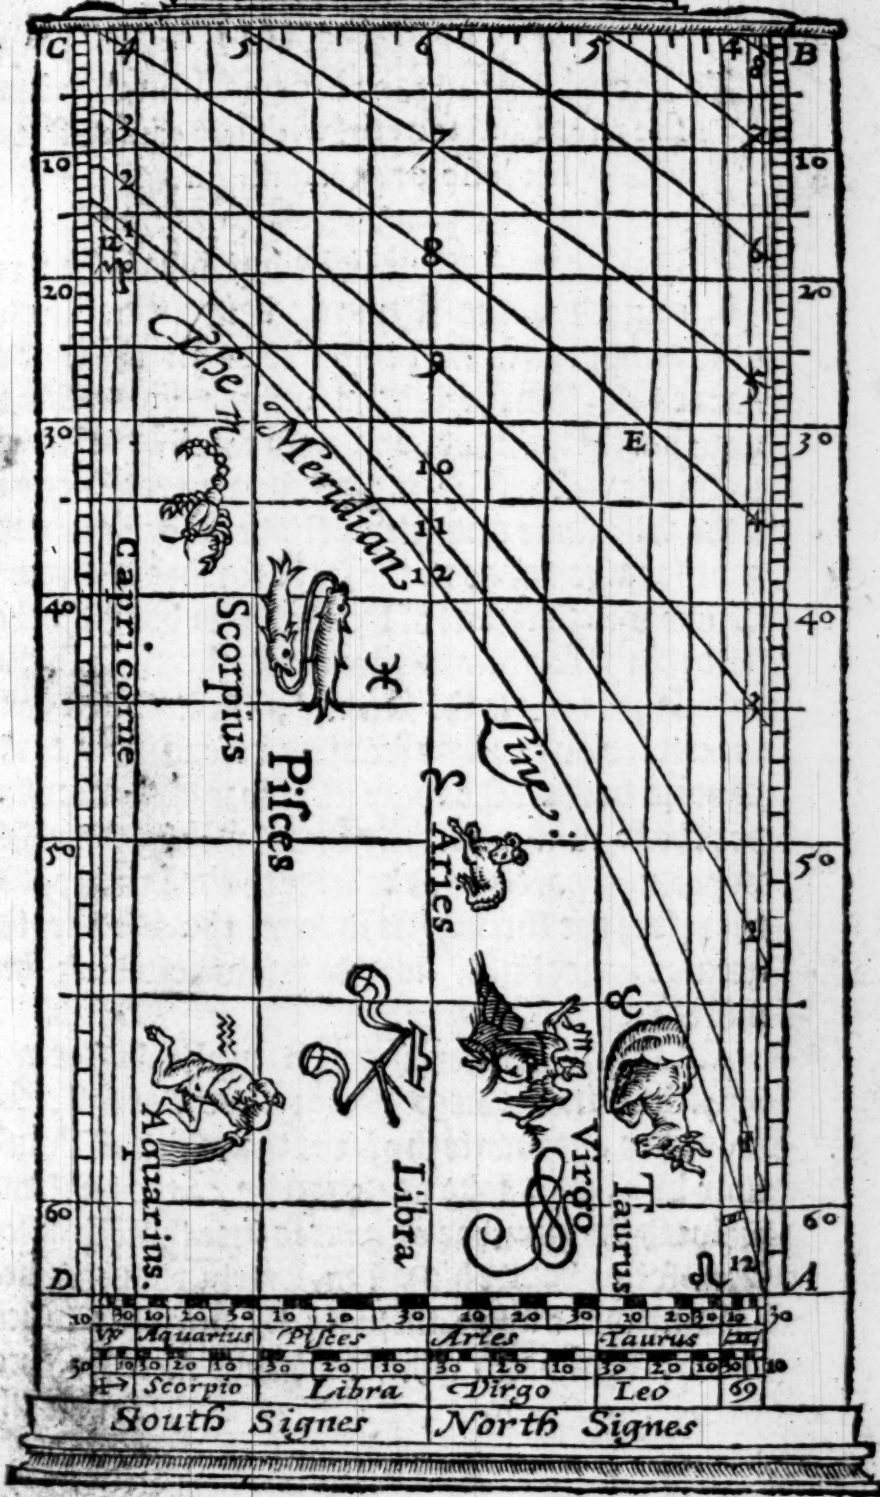 C 4 5 6 5 4 B
8
3 7 7
10 10
2
1 8 6
12
♑
20 20
The ♏ Meridian Line,
9 5
30 E 30
10
11 4
12
Capricorne
40 40
Scorpius
♓
3
Pisces
♈
Aries
50 50
2
♉
♒
Aquarius.
Libra
Virgo
Taurus
60 60
♌ 12
D A
10 30 10 20 30 10 20 30 10 20 30 10 20 30 10 30
♑ Aquarius Pisces Aries Taurus ♊
30 10 30 20 10 30 20 10 30 20 10 30 20 10 30 10
♐ Scorpio Libra Virgo Leo 69
South Signes North Signes